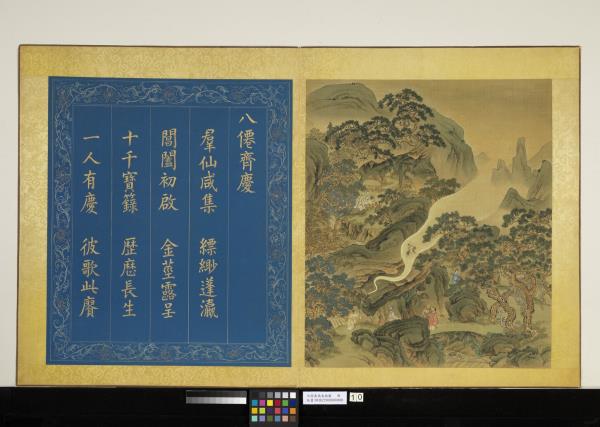 八僊齊慶
羣仙咸集　縹緲蓬瀛
閶闔初啟　金莖露呈
十千寶籙　歷歷長生
一人有慶　彼歌此賡
10